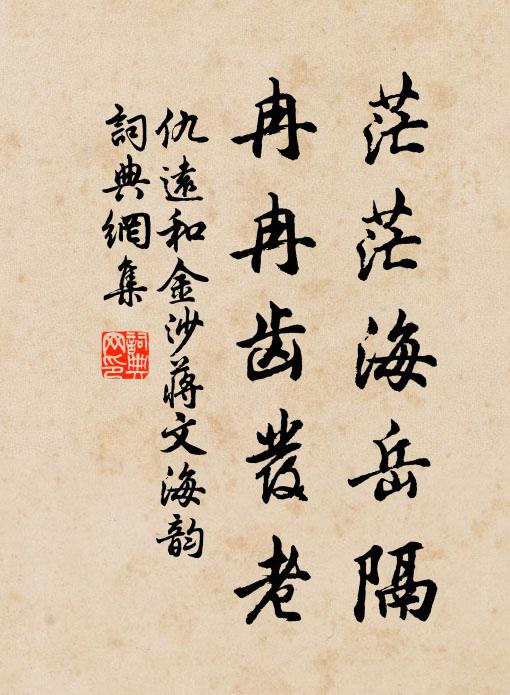 茫茫海岳隔
冉冉齿發老
仇遠和金沙蔣文海韵
詞典網集
詞典網印